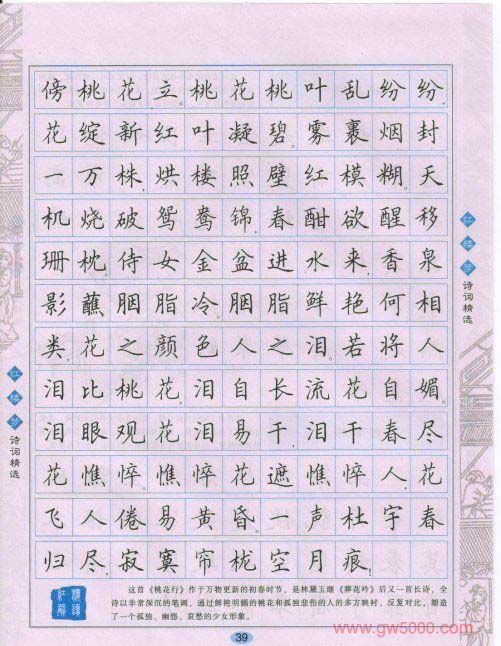 傍桃花立。桃花桃叶乱纷纷,
花绽新红叶凝碧。雾裹烟封
一万株,烘楼照壁红模糊。天
机烧破鸳鸯锦,春酣欲醒移
珊枕。侍女金盆进水来,香泉
影蘸胭脂冷。胭脂鲜艳何相
类,花之颜色人之泪。若将人
泪比桃花,泪自长流花自媚。
泪眼观花泪易干,泪干春尽
花憔悴。憔悴花遮憔悴人,花
飞人倦易黄昏。一声杜宇春
归尽,寂寞帘栊空月痕。
红楼梦
诗词精选
红楼梦
诗词精选
这首《桃花行》作于万物更新的初春时节,是林黛玉继《葬花吟》后又一首长诗,全
诗以非常深沉的笔调,通过鲜艳明媚的桃花和孤独悲伤的人的多方映衬、反复对比,塑造
了一个孤独、幽怨、哀愁的少女形象。
39
www.gw5000.com